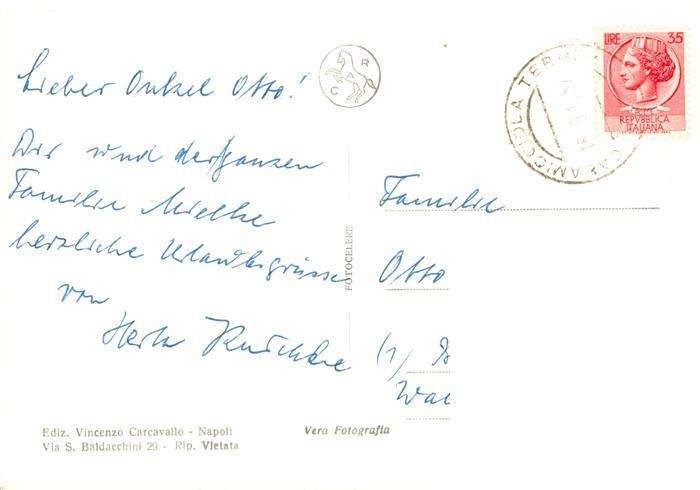 Lieber Onkel Otto!
Dir und der ganzen
Familie Mielke
herzliche Urlaubsgrüsse
von
Herta
Familie
Otto
(1)
CAR
LIRE 35
REPVBBLICA
ITALIANA
CASAMICCIOLA TERME
FOTOCELERE
Ediz. Vincenzo Carcavallo - Napoli
Via S. Baldacchini 29 - Rip. Vietata
Vera Fotografia